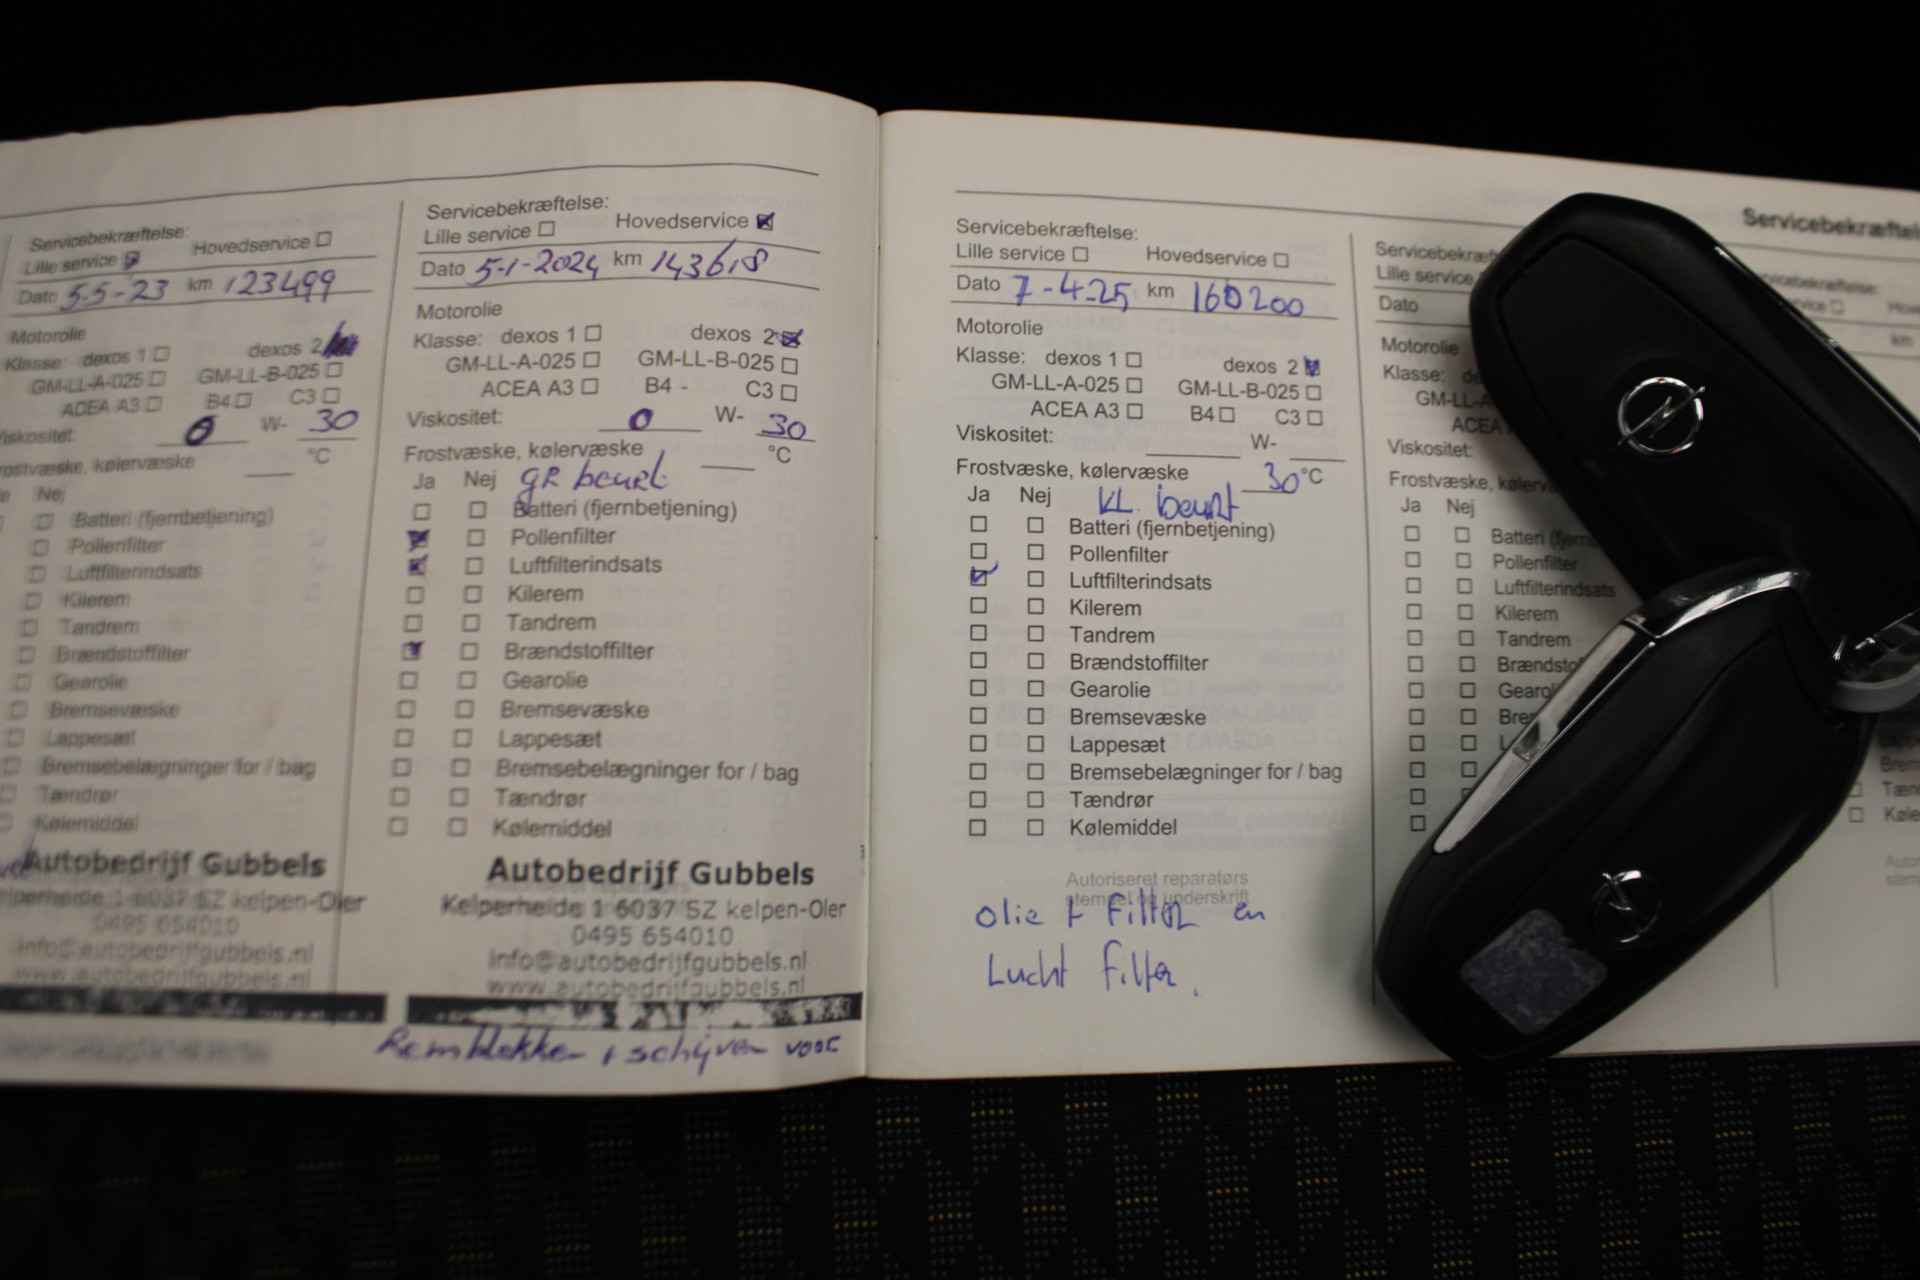 Servicebekræftelse:
Lille service Hovedservice
Dato 5-5-23 km 123499
Motorolie
Klasse: dexos 1 dexos 2
GM-LL-A-025 GM-LL-B-025
ACEA A3 B4 C3
Viskositet: 0 W- 30
Frostvæske, kølervæske °C
Nej
Batteri (fjernbetjening)
Pollenfilter
Luftfilterindsats
Kilerem
Tandrem
Brændstoffilter
Gearolie
Bremsevæske
Lappesæt
Bremsebelægninger for / bag
Tændrør
Kølemiddel
Autobedrijf Gubbels
Kelperheide 1 6037 SZ kelpen-Oler
0495 654010
info@autobedrijfgubbels.nl
www.autobedrijfgubbels.nl
Servicebekræftelse:
Lille service Hovedservice
Dato 5-1-2024 km 143618
Motorolie
Klasse: dexos 1 dexos 2
GM-LL-A-025 GM-LL-B-025
ACEA A3 B4 - C3
Viskositet: 0 W- 30
Frostvæske, kølervæske °C
Ja Nej gR beurt
Batteri (fjernbetjening)
Pollenfilter
Luftfilterindsats
Kilerem
Tandrem
Brændstoffilter
Gearolie
Bremsevæske
Lappesæt
Bremsebelægninger for / bag
Tændrør
Kølemiddel
Autobedrijf Gubbels
Kelperheide 1 6037 SZ kelpen-Oler
0495 654010
info@autobedrijfgubbels.nl
www.autobedrijfgubbels.nl
Remblokken + schijven voor
Servicebekræftelse:
Lille service Hovedservice
Dato 7-4-25 km 160200
Motorolie
Klasse: dexos 1 dexos 2
GM-LL-A-025 GM-LL-B-025
ACEA A3 B4 C3
Viskositet: W-
Frostvæske, kølervæske 30 °C
Ja Nej KL. beurt
Batteri (fjernbetjening)
Pollenfilter
Luftfilterindsats
Kilerem
Tandrem
Brændstoffilter
Gearolie
Bremsevæske
Lappesæt
Bremsebelægninger for / bag
Tændrør
Kølemiddel
Autoriseret reparatørs
stempel og underskrift
olie + Filter en
Lucht filter.
Servicebekræft
Lille service
Dato
Motorolie
Klasse:
GM-LL-A
ACEA
Viskositet:
Frostvæske, kølerv
Ja Nej
Batteri (fjern
Pollenfilter
Luftfilterindsats
Kilerem
Tandrem
Brændsto
Gearol
Bre
Servicebekræftels
km